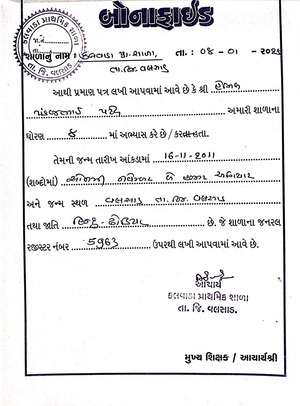 બોનાફાઈડ
શાળાનું નામ : કલવાડા પ્રા. શાળા, તા. : ૦૬-૦૧-૨૦૨૬
તા.જિ. વલસાડ
આથી પ્રમાણ પત્ર લખી આપવામાં આવે છે કે શ્રી
પટેલ અમારી શાળાના
ધોરણ માં અભ્યાસ કરે છે / કરતા હતા.
તેમની જન્મ તારીખ આંકડામાં 16-11-2011
(શબ્દોમાં) સોળમી નવેમ્બર બે હજાર અગિયાર
અને જન્મ સ્થળ વલસાડ તા. જિ. વલસાડ
તથા જાતિ હિન્દુ - ઢોડિયા છે. જે શાળાના જનરલ
રજીસ્ટર નંબર 5963 ઉપરથી લખી આપવામાં આવે છે.
આચાર્ય
કલવાડા પ્રાથમિક શાળા
તા. જિ. વલસાડ.
મુખ્ય શિક્ષક / આચાર્યશ્રી
કલવાડા પ્રાથમિક શાળા
તા. જિ. વલસાડ